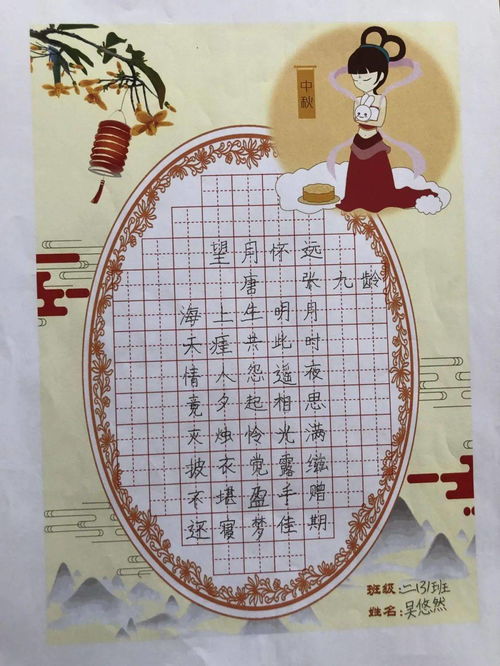 中秋
望月怀远
唐 张九龄
海上生明月
天涯共此时
情人怨遥夜
竟夕起相思
灭烛怜光满
披衣觉露滋
不堪盈手赠
还寝梦佳期
班级:二(3)班
姓名:吴悠然